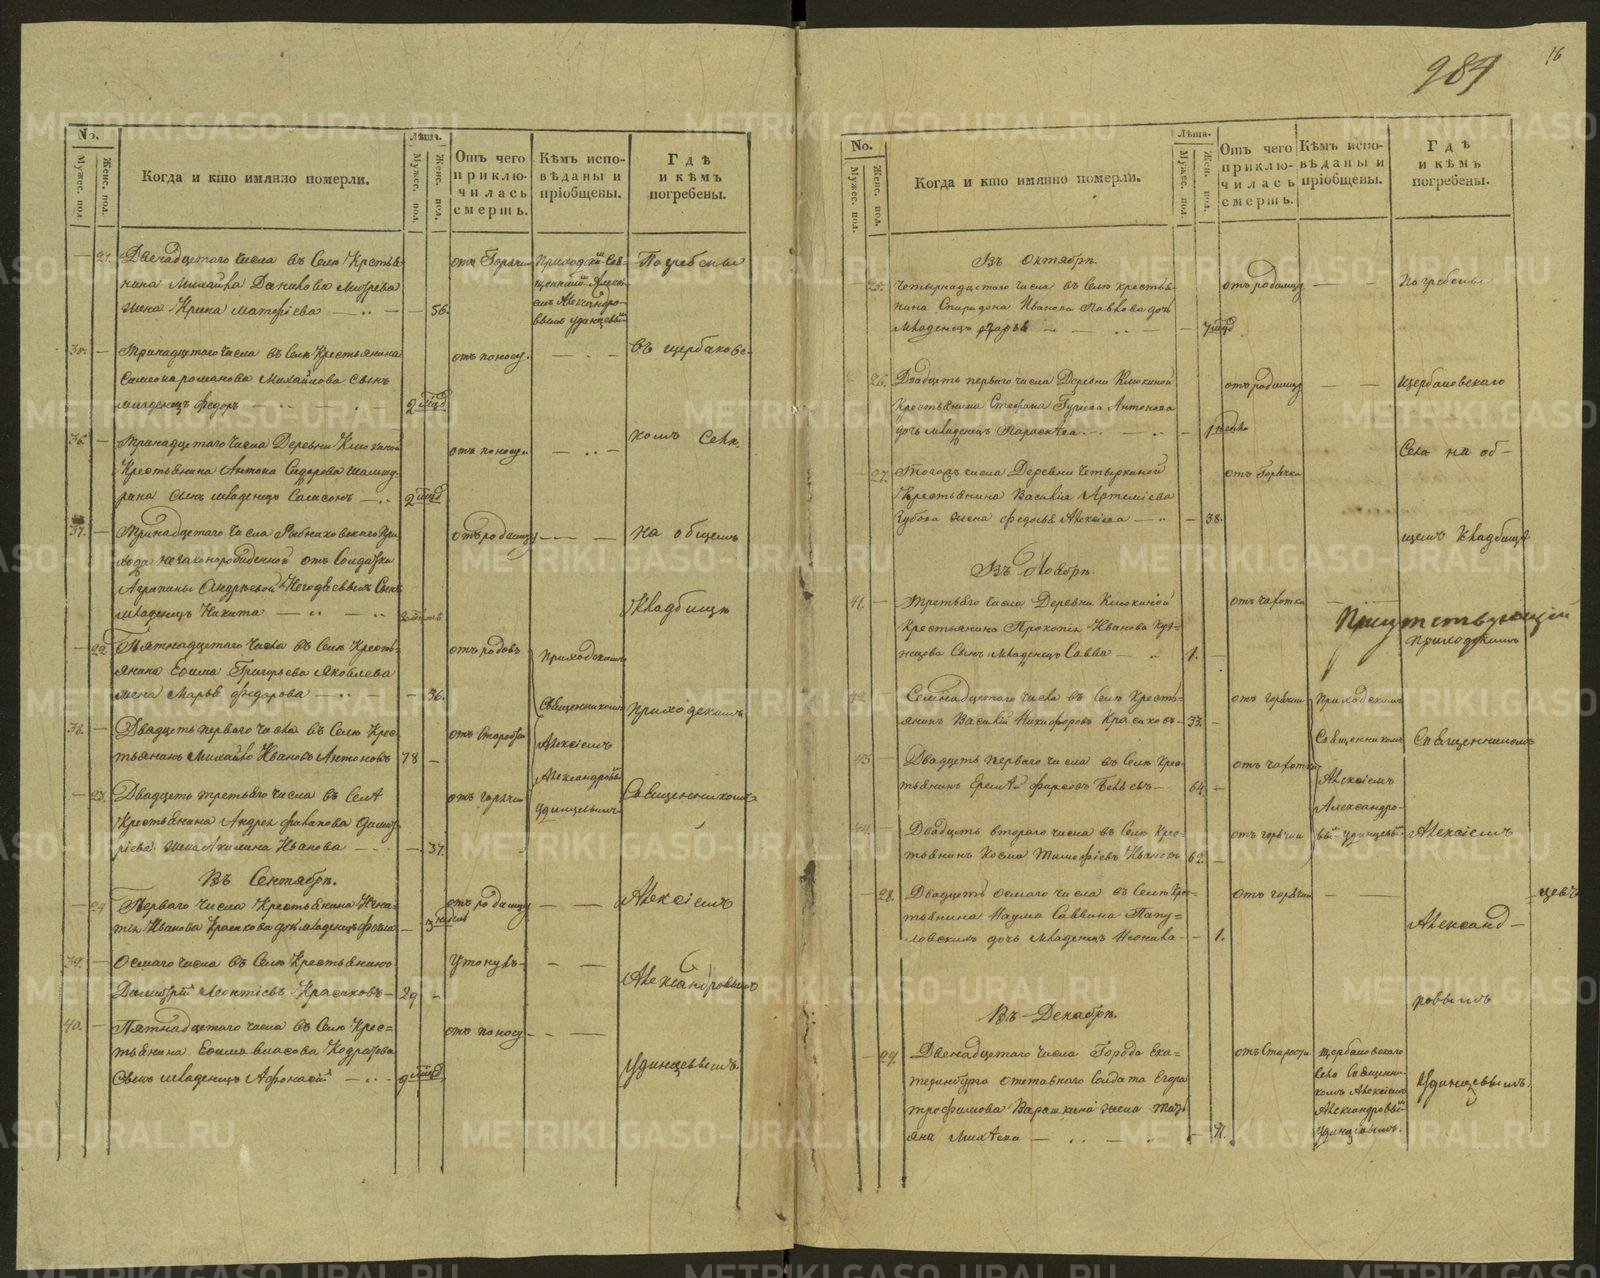 984
16
No.
Мужес. пол.
Женс. пол.
Когда и кто имянно померли.
Лѣта.
Мужес. пол.
Женс. пол.
Отъ чего приклю-чилась смерть.
Кѣмъ испо-вѣданы и пріобщены.
Гдѣ и кѣмъ погребены.
21. Двенадцетаго числа въ селѣ Крестья-
нина Михайла Данилова
жена Ирина Матфіева 56.
отъ Горячки
Приходскій Свя-
щенникъ Алек-
сѣй Александро-
вымъ Удинцевый
Погребены
Тринадцетаго числа въ селѣ Крестьянина
Симеона Романова Михайлова сынъ
младенецъ Федоръ 2
отъ поносу.
въ щербаковс-
36. Тринадцетаго числа Деревни Клюкиной
Крестьянина Антона Сидорова
сынъ младенецъ Самсонъ 2
отъ поносу
комъ селѣ.
37. Тринадцетаго числа
незаконорожденной отъ Солдатки
сынъ
младенецъ Никита
отъ родимцу
на общемъ
Кладбищѣ
22. Пятнадцетаго числа въ селѣ Кресть-
янина Ефима Григорьева Яковлева
жена Марья Федорова 36.
отъ родовъ
Приходскимъ
38. Двадцеть перваго числа въ селѣ Крес-
тьянинъ Михайло Ивановъ Антоновъ 78
отъ старости
Священникомъ
Алексіемъ
приходскимъ
23. Двадцеть третьяго числа въ селѣ
Крестьянина Андрея Филипова
жена Акилина Иванова 37.
отъ горячки
Александровы
Удинцевымъ
Священникомъ
Въ Сентябрѣ.
24. Перваго числа Крестьянина Игна-
тія Иванова Красикова дочь младенецъ Фекла 3
отъ родимцу
Алексіемъ
39. Осмаго числа въ селѣ Крестьянинъ
Димитрій Леонтіевъ Красиковъ 29
Утонулъ
Александровымъ
40. Пятнадцетаго числа въ селѣ Крес-
тьянина Ефима Власова Кодратова
сынъ младенецъ Афонасій 9
отъ поносу
Удинцевымъ
No.
Мужес. пол.
Женс. пол.
Когда и кто имянно померли.
Лѣта.
Мужес. пол.
Женс. пол.
Отъ чего приклю-чилась смерть.
Кѣмъ испо-вѣданы и пріобщены.
Гдѣ и кѣмъ погребены.
Въ Октябрѣ.
25. Четырнадцетаго числа въ селѣ крестья-
нина Спиридона Иванова Павлова дочь
младенецъ Дарья 7
отъ родимцу
погребены
26. Двадцеть перваго числа Деревни Клюкиной
Крестьянина Стефана Гуріева Антонова
дочь младенецъ Параскѣва 1
отъ родимцу
щербаковскаго
27. Тогожъ числа Деревни Четыркиной
Крестьянина Василія Артеміева
Зубова жена Федосья Алексіева 38.
отъ Горячки
села на об-
щемъ кладбищѣ
Въ Ноябрѣ.
41. Третьяго числа Деревни Клюкиной
Крестьянина Прокопія Иванова Куз-
нецова сынъ младенецъ Савва 1.
отъ чахотки
Приходскимъ
42. Семнадцетаго числа въ селѣ Кресть-
янинъ Василій Никифоровъ Красиковъ 33.
отъ горячки
Приходскимъ
Священникомъ
Священникомъ
43 Двадцеть перваго числа въ селѣ Крес-
тьянинъ Еремѣй Фирсовъ 64.
отъ чахотки
Алексіемъ
Александро-
44. Двадцеть втораго числа въ селѣ Крес-
тьянинъ Козма Тимофіевъ Ивановъ 62.
отъ горячки
вый Удинцевы
Алексіемъ
28. Двадцеть осмаго числа въ селѣ Крес-
тьянина Наума Саввина Папу-
ловскихъ дочь младенецъ Неонила 1.
отъ горячки
Александ-
ровымъ
Въ Декабрѣ.
29. Двенадцетаго числа Города Ека-
теринбурга отставнаго солдата Егора
Трофимова Варошкина жена Тать-
яна Михѣева 71.
отъ Старости
Щербаковскаго
села Священни-
комъ Алексіемъ
Александровый
Удинцевымъ.
Удинцевымъ.
METRIKI.GASO-URAL.RU